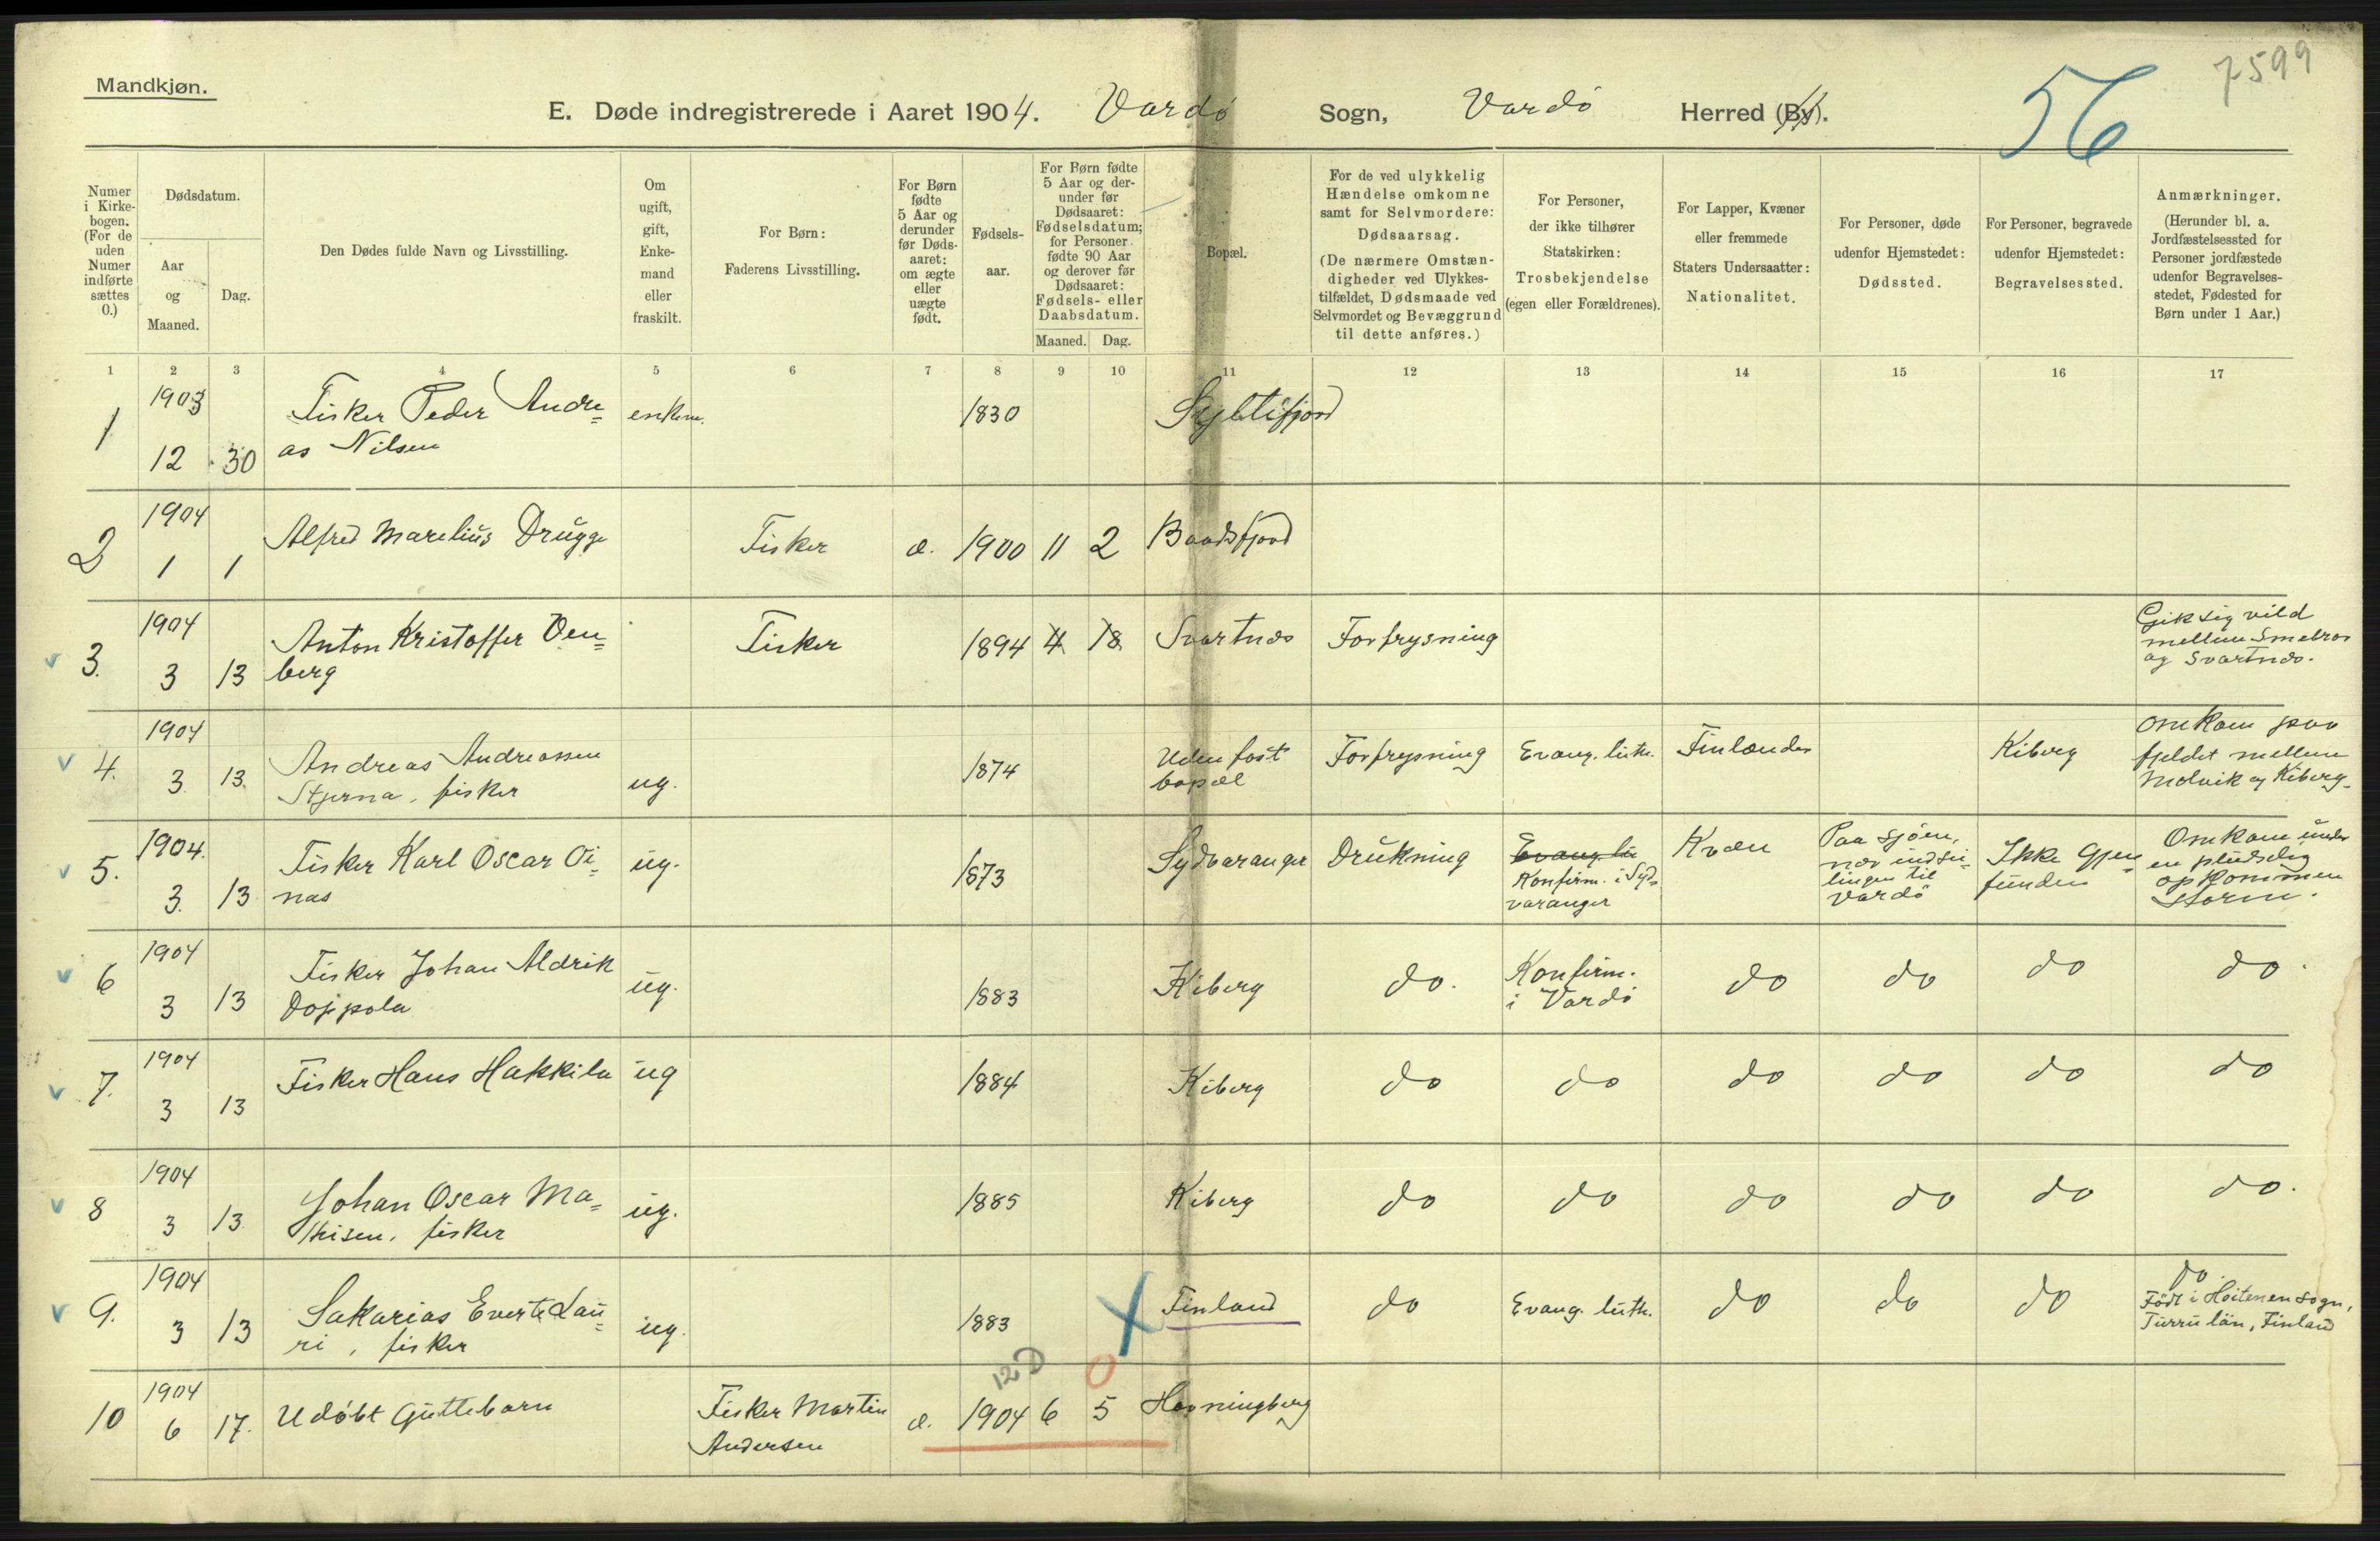 7599
Mandkjøn.
56
E. Døde indregistrerede i Aaret 1904. Vardö Sogn, Vardö Herred (By).
Numer i Kirkebogen. (For de uden Numer indførte sættes 0.)
Dødsdatum.
Aar og Maaned.
Dag.
Den Dødes fulde Navn og Livsstilling.
Om ugift, gift, Enkemand eller fraskilt.
For Børn: Faderens Livsstilling.
For Børn fødte 5 Aar og derunder før Dødsaaret: om ægte eller uægte født.
Fødselsaar.
For Børn fødte 5 Aar og derunder før Dødsaaret: Fødselsdatum; for Personer fødte 90 Aar og derover før Dødsaaret: Fødsels- eller Daabsdatum.
Maaned. Dag.
Bopæl.
For de ved ulykkelig Hændelse omkomne samt for Selvmordere: Dødsaarsag. (De nærmere Omstændigheder ved Ulykkestilfældet, Dødsmaade ved Selvmordet og Bevæggrund til dette anføres.)
For Personer, der ikke tilhører Statskirken: Trosbekjendelse (egen eller Forældrenes).
For Lapper, Kvæner eller fremmede Staters Undersaatter: Nationalitet.
For Personer, døde udenfor Hjemstedet: Dødssted.
For Personer, begravede udenfor Hjemstedet: Begravelsessted.
Anmærkninger. (Herunder bl. a. Jordfæstelsessted for Personer jordfæstede udenfor Begravelsesstedet, Fødested for Børn under 1 Aar.)
1 2 3 4 5 6 7 8 9 10 11 12 13 14 15 16 17
1 1903 12 30 Fisker Peder Andre= as Nilsen enkem. 1830 Syltifjord
2 1904 1 1 Alfred Marelius Drugge Fisker æ. 1900 11 2 Baadsfjord
3. 1904 3 13 Anton Kristoffer Den= berg Fisker 1894 4 18 Svartnæs Forfrysning Gik sig vild mellem Smelror og Svartnæs.
4. 1904 3 13. Andreas Andreassen Stjerna, fisker ug. 1874 Uden fast bopæl Forfrysning Evang. luth. Finlænder Kiberg Omkom paa fjeldet mellem Molvik og Kiberg.
5. 1904. 3. 13 Fisker Karl Oscar Oi= nas ug. 1873 Sydvaranger Drukning Evang. lu Konfirm. i Syd- varanger Kvæn Paa sjöen, nær indsei= lingen til Vardö Ikke gjen= funden Omkom under en pludselig opkommen storm.
6 1904 3 13 Fisker Johan Aldrik Doppola ug. 1883 Kiberg do. Konfirm. i Vardö do do do do.
7. 1904 3 13 Fisker Hans Hakkila ug 1884 Kiberg do do do do do do
8 1904 3 13. Johan Oscar Ma= thisen, fisker ug. 1885 Kiberg do do do do do do.
9. 1904 3 13 Sakarias Everte Lau= ri, fisker ug. 1883 Finland do Evang. luth. do do do do Födt i Hoitenen sogn, Turru län, Finland
12 D 0
10 1904 6 17. Udöbt Guttebarn Fisker Martin Andersen æ. 1904 6 5 Havningberg